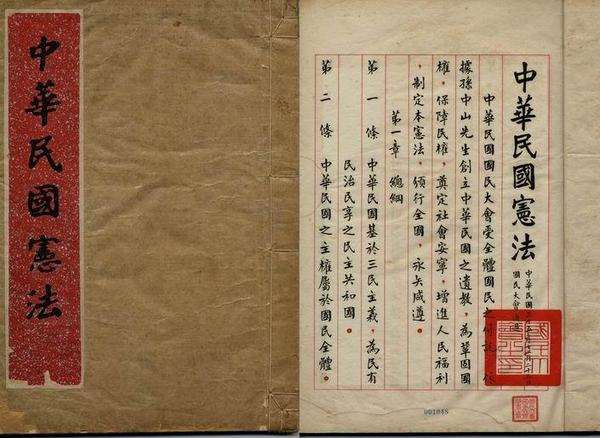 中華民國憲法
中華民國憲法
中華民國
國民大會
中華民國國民大會受全體國民之付託,依
據孫中山先生創立中華民國之遺教,為鞏固國
權,保障民權,奠定社會安寧,增進人民福利
,制定本憲法,頒行全國,永矢咸遵。
第一章 總綱
第一條 中華民國基於三民主義,為民有
民治民享之民主共和國。
第二條 中華民國之主權屬於國民全體。
001048